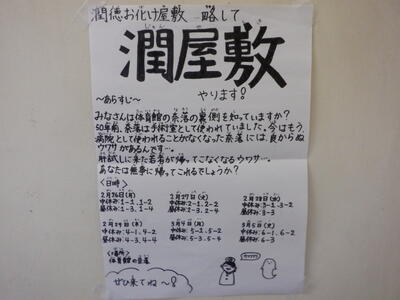 潤徳お化け屋敷 略して
潤屋敷
やります!
～あらすじ～
みなさんは体育館の奈落の裏側を知っていますか?
50年前、奈落は手術室として使われていました。今はもう
病院として使われることがなくなった奈落には、良からぬ
ウワサがあるんです…。
肝試しに来た若者が帰ってこなくなるウワサ…。
あなたは無事に帰ってこれるでしょうか?
〈日時〉
2月26日(月)
中休み:1-1、1-2
昼休み:1-3、1-4
2月27日(火)
中休み:2-1、2-2
昼休み:2-3、2-4
2月28日(水)
中休み:3-1、3-2
昼休み:3-3
2月29日(木)
中休み:4-1、4-2
昼休み:4-3、4-4
3月4日(月)
中休み:5-1、5-2
昼休み:5-3、5-4
3月5日(火)
中休み:6-1、6-2
昼休み:6-3
〈場所〉
体育館の奈落
ぜひ来てね～!